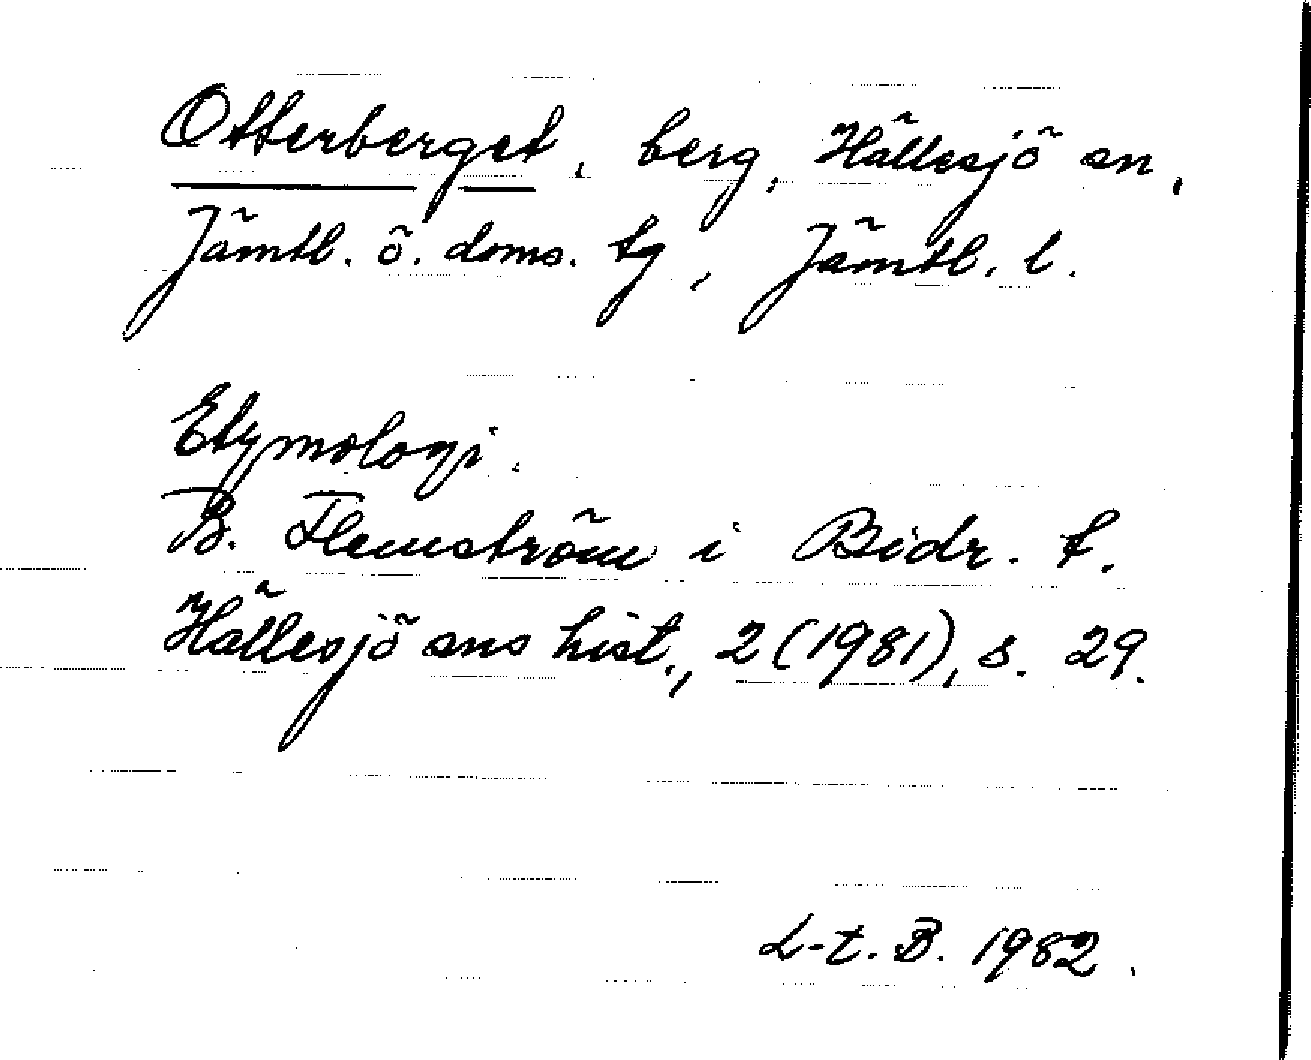 Otterberget, berg, Hällesjö sn,
Jämtl. ö. doms. tg, Jämtl. l.
Etymologi.
B. Flemström i Bidr. t.
Hällesjö sns hist., 2 (1981), s. 29.
L-t. B. 1982.